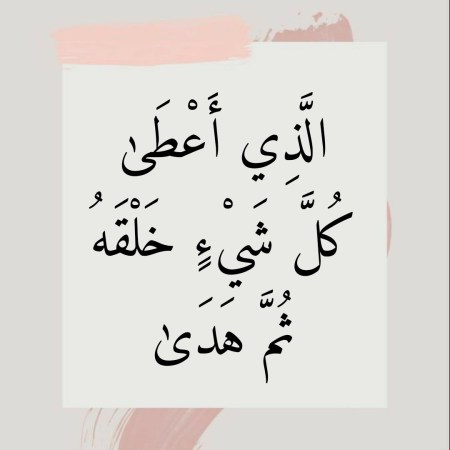 الَّذِي أَعْطَىٰ
كُلَّ شَيْءٍ خَلْقَهُ
ثُمَّ هَدَىٰ